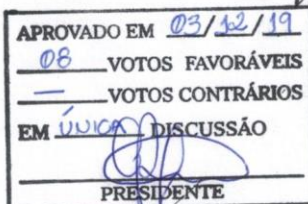 APROVADO EM 03/12/19
08 VOTOS FAVORÁVEIS
— VOTOS CONTRÁRIOS
EM ÚNICA DISCUSSÃO
PRESIDENTE